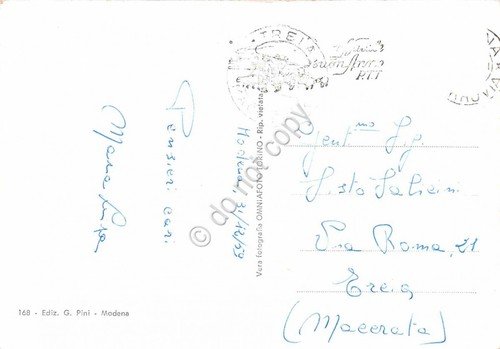 Pensieri cari
Maria Luisa
Modena, 31/12/59
168 - Ediz. G. Pini - Modena
Vera fotografia OMNIAFOTO TORINO - Rip. vietata
TREIA
Buon Anno
P.T.T.
Gent.mo Sig.
Sisto Salicini
Via Roma, 21
Treia
(Macerata)
do not copy